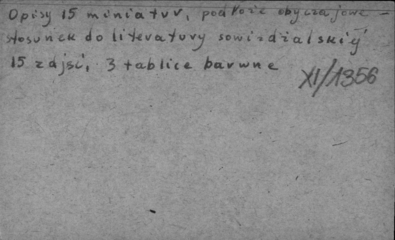 Opisy 15 miniatur, podłoże obyczajowe -
stosunek do literatury sowizdzalskiej
15 zdjęć, 3 tablice barwne
XI/1356